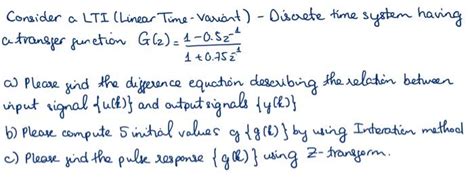 Consider a LTI (Linear Time-Variant) - Discrete time system having
a transfer function G(z) = (1-0.5z^-1)/(1+0.75z^-1)
a) Please find the difference equation describing the relation between
input signal {u(k)} and output signals {y(k)}
b) Please compute 5 initial values of {g(k)} by using Interation method
c) Please find the pulse response {g(k)} using Z-transform.